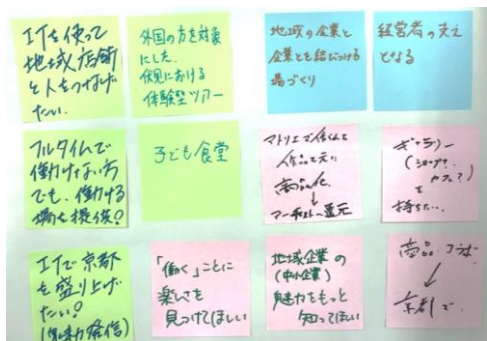 ITを使って
地域店舗
と人をつなげ
たい.
外国の方を対象
にした.
伏見における
体験型ツアー
地域の企業と
企業とを結びつける
場づくり
経営者の支え
となる
フルタイムで
働けない方
でも、働ける
場を提供!
子ども食堂
作品を元に
商品化
↓
還元
ギャラリー
(ショップ?
カフェ?)
を
持ちたい.
ITで京都
を盛り上げ
たい!
(魅力発信)
「働く」ことに
楽しさを
見つけてほしい
地域企業の
(中小企業)
魅力をもっと
知ってほしい
商品
↓
京都で.